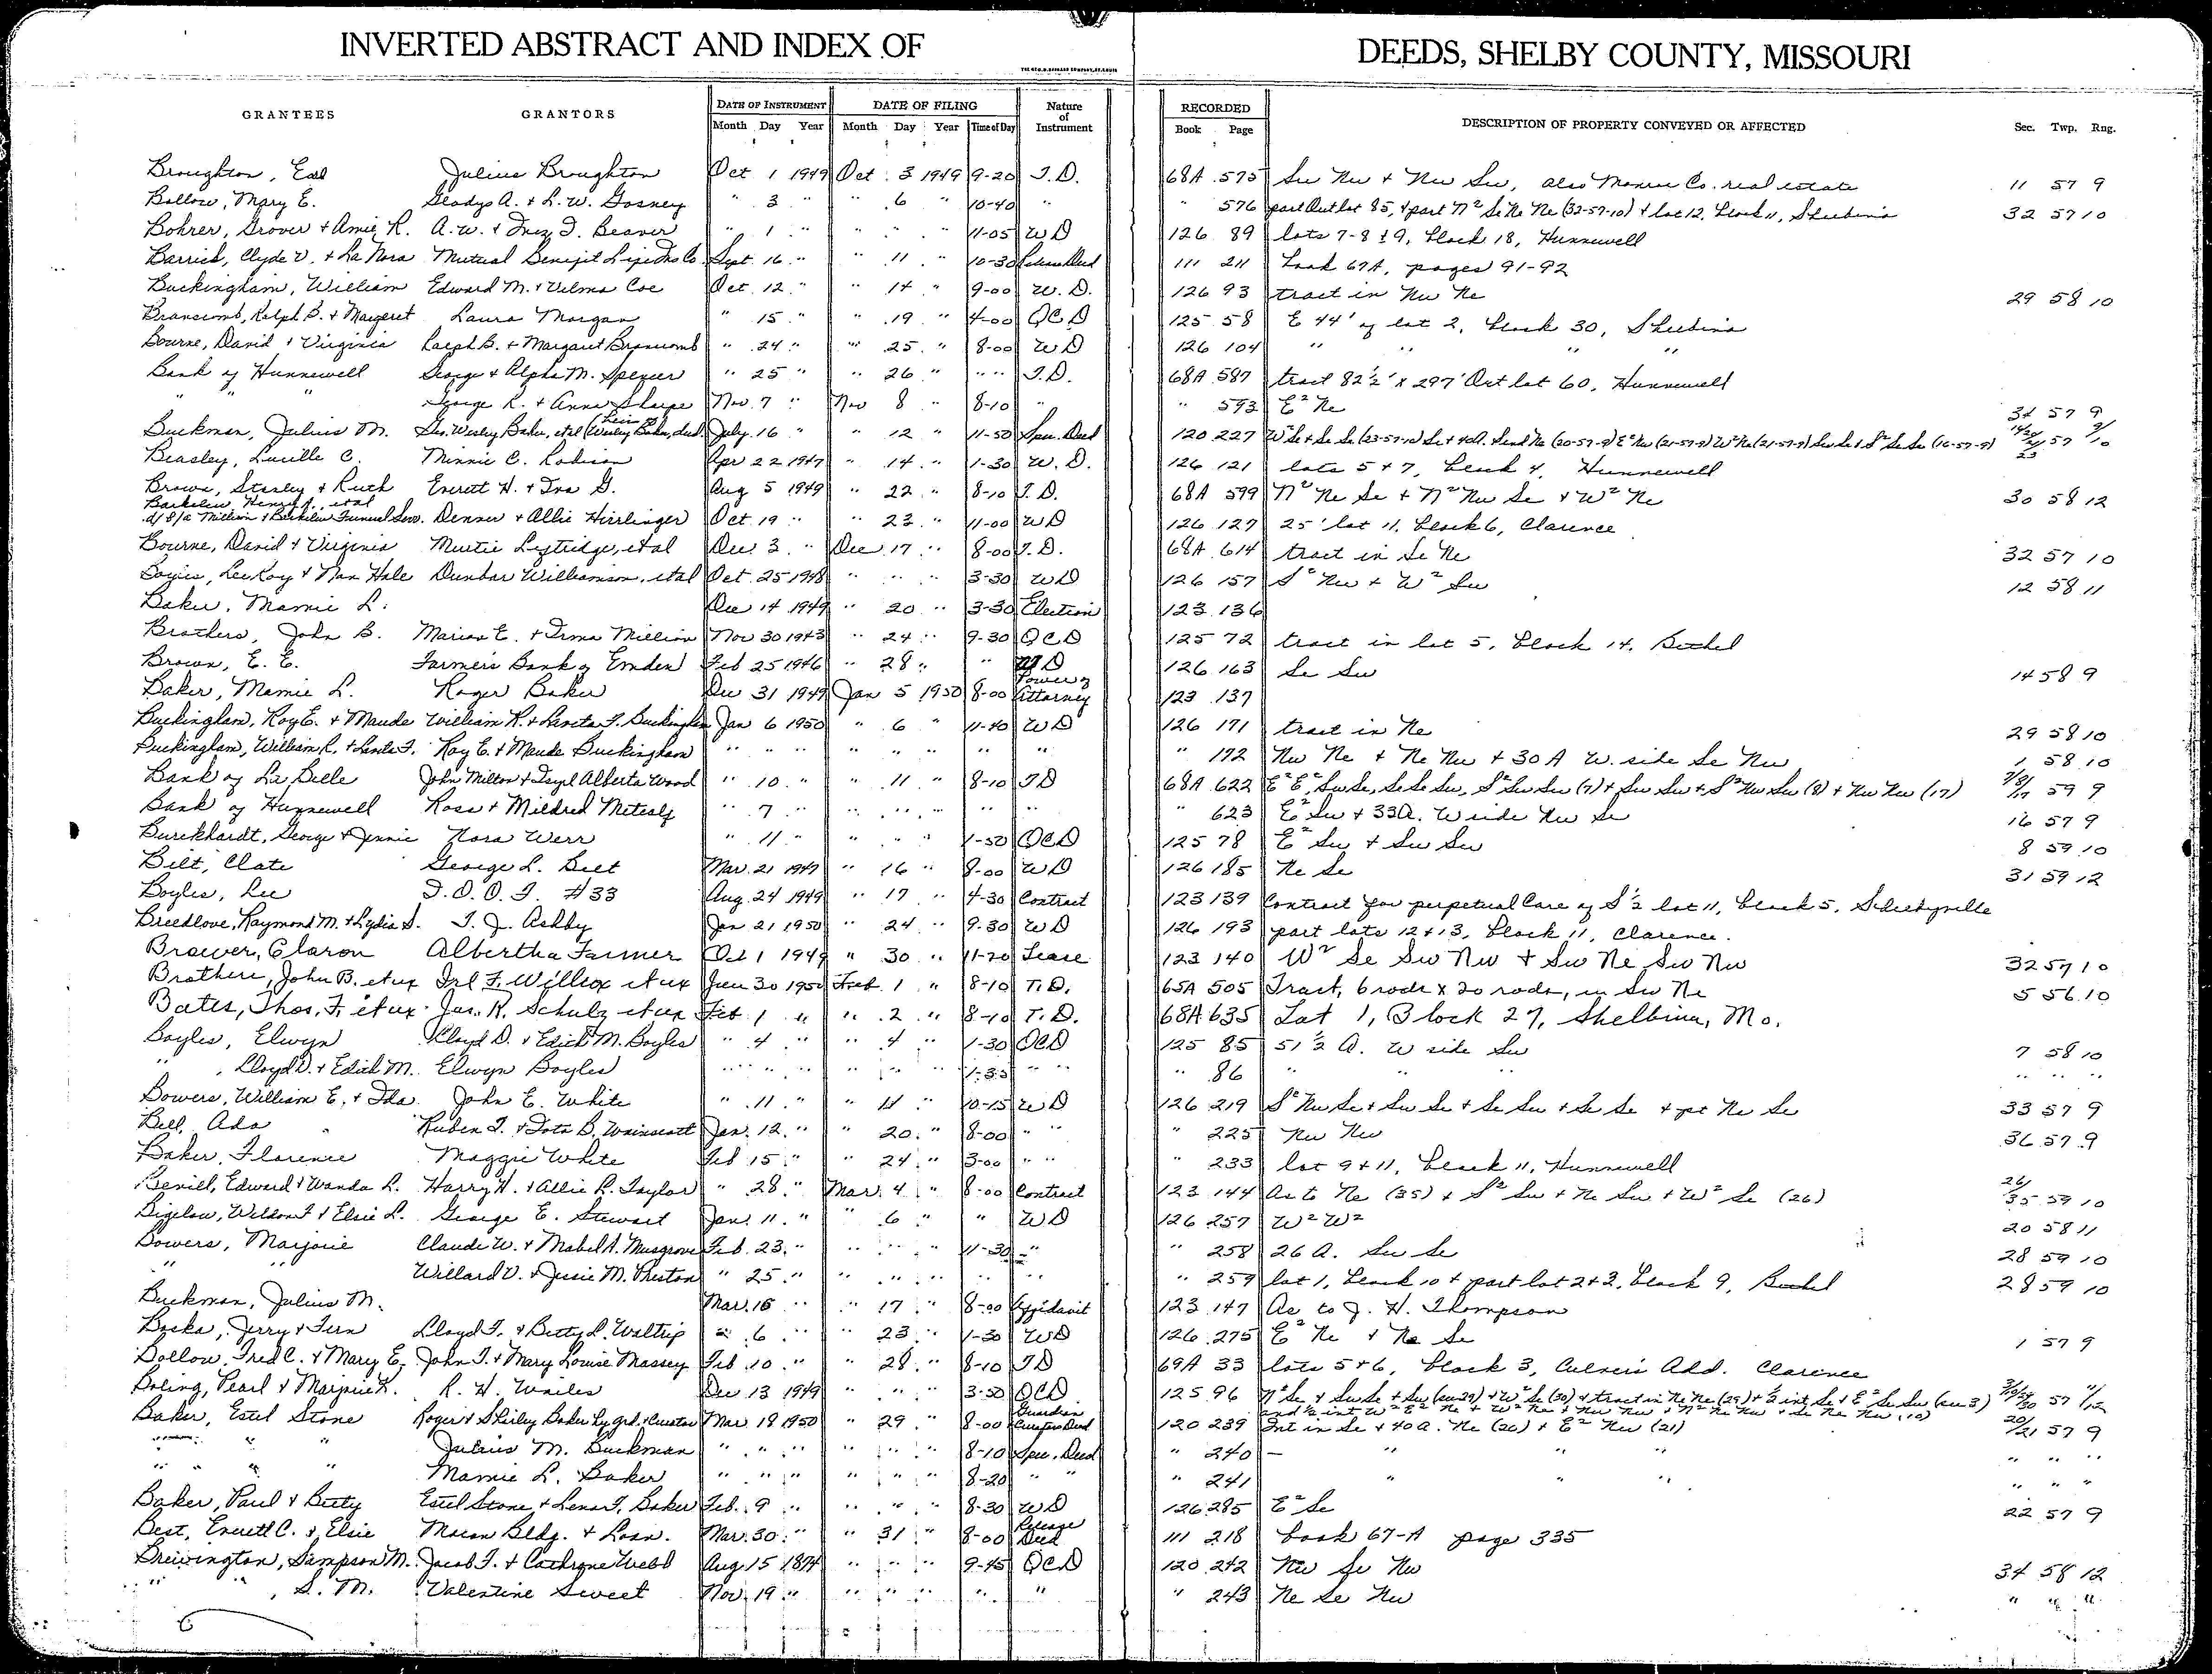 INVERTED ABSTRACT AND INDEX OF DEEDS, SHELBY COUNTY, MISSOURI
GRANTEES GRANTORS DATE OF INSTRUMENT DATE OF FILING Nature of Instrument RECORDED DESCRIPTION OF PROPERTY CONVEYED OR AFFECTED Sec. Twp. Rng.
Month Day Year Month Day Year Time of Day Book Page
Broughton, Earl Julius Broughton Oct 1 1949 Oct 3 1949 9-20 T.D. 68A 575 Sw Nw + Nw Sw, also Monroe Co. real estate 11 57 9
Bollow, Mary E. Gladys A. + L.W. Gosney " 3 " " 6 " 10-40 " " 576 part Outlot 85, + part N² Se Ne Ne (32-57-10) + lot 12, block 11, Shelbina 32 57 10
Bohrer, Grover + Amie R. A.W. + Inez I. Beaver " 1 " " " " 11-05 WD 126 89 lots 7-8 + 9, block 18, Hunnewell
Barrick, Clyde V. + La Nora Mutual Benefit Life Ins Co. Sept. 16 " " 11 " 10-30 Release Deed 111 211 book 67A, pages 91-92
Buckingham, William Edward M. + Velma Coe Oct. 12 " " 14 " 9-00 W.D. 126 93 tract in Nw Ne 29 58 10
Branscomb, Ralph B. + Margaret Laura Morgan " 15 " " 19 " 4-00 QCD 125 58 E 44' of lot 2, block 30, Shelbina
Bourne, David + Virginia Ralph B. + Margaret Branscomb " 24 " " 25 " 8-00 WD 126 104 " " " "
Bank of Hunnewell George + Alpha M. Spencer " 25 " " 26 " " " T.D. 68A 587 tract 82½' x 297' Out lot 60, Hunnewell
" " " George R. + Anna Sharpe Nov. 7 " Nov 8 " 8-10 " " 593 E² Ne 34 57 9
Buckman, Julius M. Geo. Wesley Baker, etal (heirs Wesley Baker, decd.) July 16 " " 12 " 11-50 Spec. Deed 120 227
Beasley, Lucille C. Minnie C. Robison Apr 22 1947 " 14 " 1-30 W.D. 126 121 lots 5 + 7, block 4, Hunnewell
Brown, Stanley + Ruth Everett H. + Iva G. Aug 5 1949 " 22 " 8-10 T.D. 68A 599 N² Ne Se + N² Nw Se + W² Ne 30 58 12
Barkelew, Henry A., etal
d/b/a Million + Barkelew Funeral Serv. Denver + Allie Hirrlinger Oct. 19 " " 23 " 11-00 WD 126 127 25' lot 11, block 6, Clarence
Bourne, David + Virginia Mertie Lystridge, etal Dec. 3 " Dec 17 " 8-00 T.D. 68A 614 tract in Se Ne 32 57 10
LeeRoy + Nan Hale Dunbar Williamson, etal Oct. 25 1948 " " " 3-30 WD 126 157 S² Nw + W² Sw 12 58 11
Baker, Mamie L. Dec 14 1949 " 20 " 3-30 Election 123 136
Brothers, John B. Marion E. + Irma Million Nov 30 1943 " 24 " 9-30 QCD 125 72 tract in lot 5, block 14, Bethel
Brown, E. E. Farmers Bank of Emden Feb 25 1946 " 28 " " WD 126 163 Se Sw 14 58 9
Baker, Mamie L. Roger Baker Dec 31 1949 Jan 5 1950 8-00 Power of Attorney 123 137
Buckingham, Roy E. + Maude William R. + Leneta F. Buckingham Jan 6 1950 " 6 " 11-40 WD 126 171 tract in Ne 29 58 10
Buckingham, William R. + Leneta F. Roy E. + Maude Buckingham " " " " " " " " " 172 Nw Ne + Ne Nw + 30 A W. side Se Nw 1 58 10
Bank of La Belle John Milton + Alberta Wood " 10 " " 11 " 8-10 TD 68A 622 E² E², Sw Se, Se Se Sw, S² Sw Sw (7) + Sw Sw + S² Nw Sw (8) + Nw Nw (17) 7/8/17 59 9
Bank of Hunnewell Ross + Mildred Metcalf " 7 " " " " " " " 623 E² Sw + 33A. W side Nw Se 16 57 9
Burckhardt, George + Jennie Nora Werr " 11 " " " " 1-50 QCD 125 78 E² Sw + Sw Sw 8 59 10
Belt, Clate George L. Belt Mar. 21 1949 " 16 " 8-00 WD 126 185 Ne Se 31 59 12
Boyles, Lee I.O.O.F. #33 Aug. 24 1949 " 17 " 4-30 Contract 123 139 Contract for perpetual Care of S½ lot 11, block 5, Shelbyville
Breedlove, Raymond M. + Lydia S. T. J. Ashby Jan 21 1950 " 24 " 9-30 WD 126 193 part lots 12 + 13, block 11, Clarence.
Brewer, Claron Albertha Farmer Oct 1 1949 " 30 " 11-20 Lease 123 140 W² Se Sw Nw + Sw Ne Sw Nw 32 57 10
Brothers, John B. et ux Irl F. Willcox et ux Jan 30 1950 Feb. 1 " 8-10 T.D. 65A 505 Tract, 6 rods x 20 rods, in Sw Ne 5 56 10
Bates, Thos. F. et ux Jas. R. Schulz et ux Feb 1 " " 2 " 8-10 T.D. 68A 635 Lot 1, Block 27, Shelbina, Mo.
Boyles, Elwyn Lloyd D. + Edith M. Boyles " 4 " " 4 " 1-30 QCD 125 85 51½ A. W side Sw 7 58 10
" , Lloyd D. + Edith M. Elwyn Boyles " " " " " " 1-35 " " " 86 " " " " " "
Bowers, William E. + Ida John E. White " 11 " " 11 " 10-15 WD 126 219 S² Nw Se + Sw Se + Se Sw + Se Se + pt Ne Se 33 57 9
Bell, Ada Ruben T. + Iota B. Wainscott Jan. 12 " " 20 " 8-00 " " " 225 Nw Nw 36 57 9
Baker, Florence Maggie White Feb 15 " " 24 " 3-00 " " " 233 lot 9 + 11, block 11, Hunnewell
Bevill, Edward + Wanda L. Harry H. + Allie R. Taylor " 28 " Mar. 4 " 8-00 Contract 123 144 As to Ne (35) + S² Sw + Ne Sw + W² Se (26) 26/35 59 10
Bigelow, Weldon F. + Elsie L. George E. Stewart Jan. 11 " " 6 " " WD 126 257 W² W² 20 58 11
Bowers, Marjorie Claude W. + Mabel A. Musgrove Feb. 23 " " " " 11-30 " " 258 26 A. Sw Se 28 59 10
" " Willard V. + Jessie M. Preston " 25 " " " " " " " 259 lot 1, block 10 + part lot 2 + 3, block 9, Bethel 28 59 10
Buckman, Julius M. Mar. 16 " " 17 " 8-00 Affidavit 123 147 As to J. H. Thompson
Boska, Jerry + Fern Lloyd F. + Betty L. Waltrip " 6 " " 23 " 1-30 WD 126 275 E² Ne + Ne Se 1 57 9
Bollow, Fred C. + Mary E. John T. + Mary Louise Massey Feb. 10 " " 28 " 8-10 TD 69A 33 lots 5 + 6, block 3, Culvers Add. Clarence
Boling, Pearl + Marjorie K. R. H. Wailes Dec 13 1949 " " " 3-50 QCD 125 96
Baker, Estel Stone Roger + Shirley Baker by grd. + Curator Mar 18 1950 " 29 " 8-00 Guardian Curators Deed 120 239 Int in Se + 40 A. Ne (20) + E² Nw (21) 20/21 57 9
" " " Julius M. Buckman " " " " " " 8-10 Spec. Deed " 240 " " " " " "
" " " Mamie L. Baker " " " " " " 8-20 " " " 241 " " " " " "
Baker, Paul + Betty Estel Stone + Lena F. Baker Feb. 9 " " " " 8-30 WD 126 285 E² Se 22 57 9
Best, Everett C. + Elsie Macon Bldg. + Loan. Mar. 30 " " 31 " 8-00 Release Deed 111 218 book 67-A page 335
Brewington, Sampson M. Jacob F. + Cathryne Webb Aug 15 1874 " " " 9-45 QCD 120 242 Nw Se Nw 34 58 12
" " , S. M. Valentine Sweet Nov. 19 " " " " " " " 243 Ne Se Nw " " "